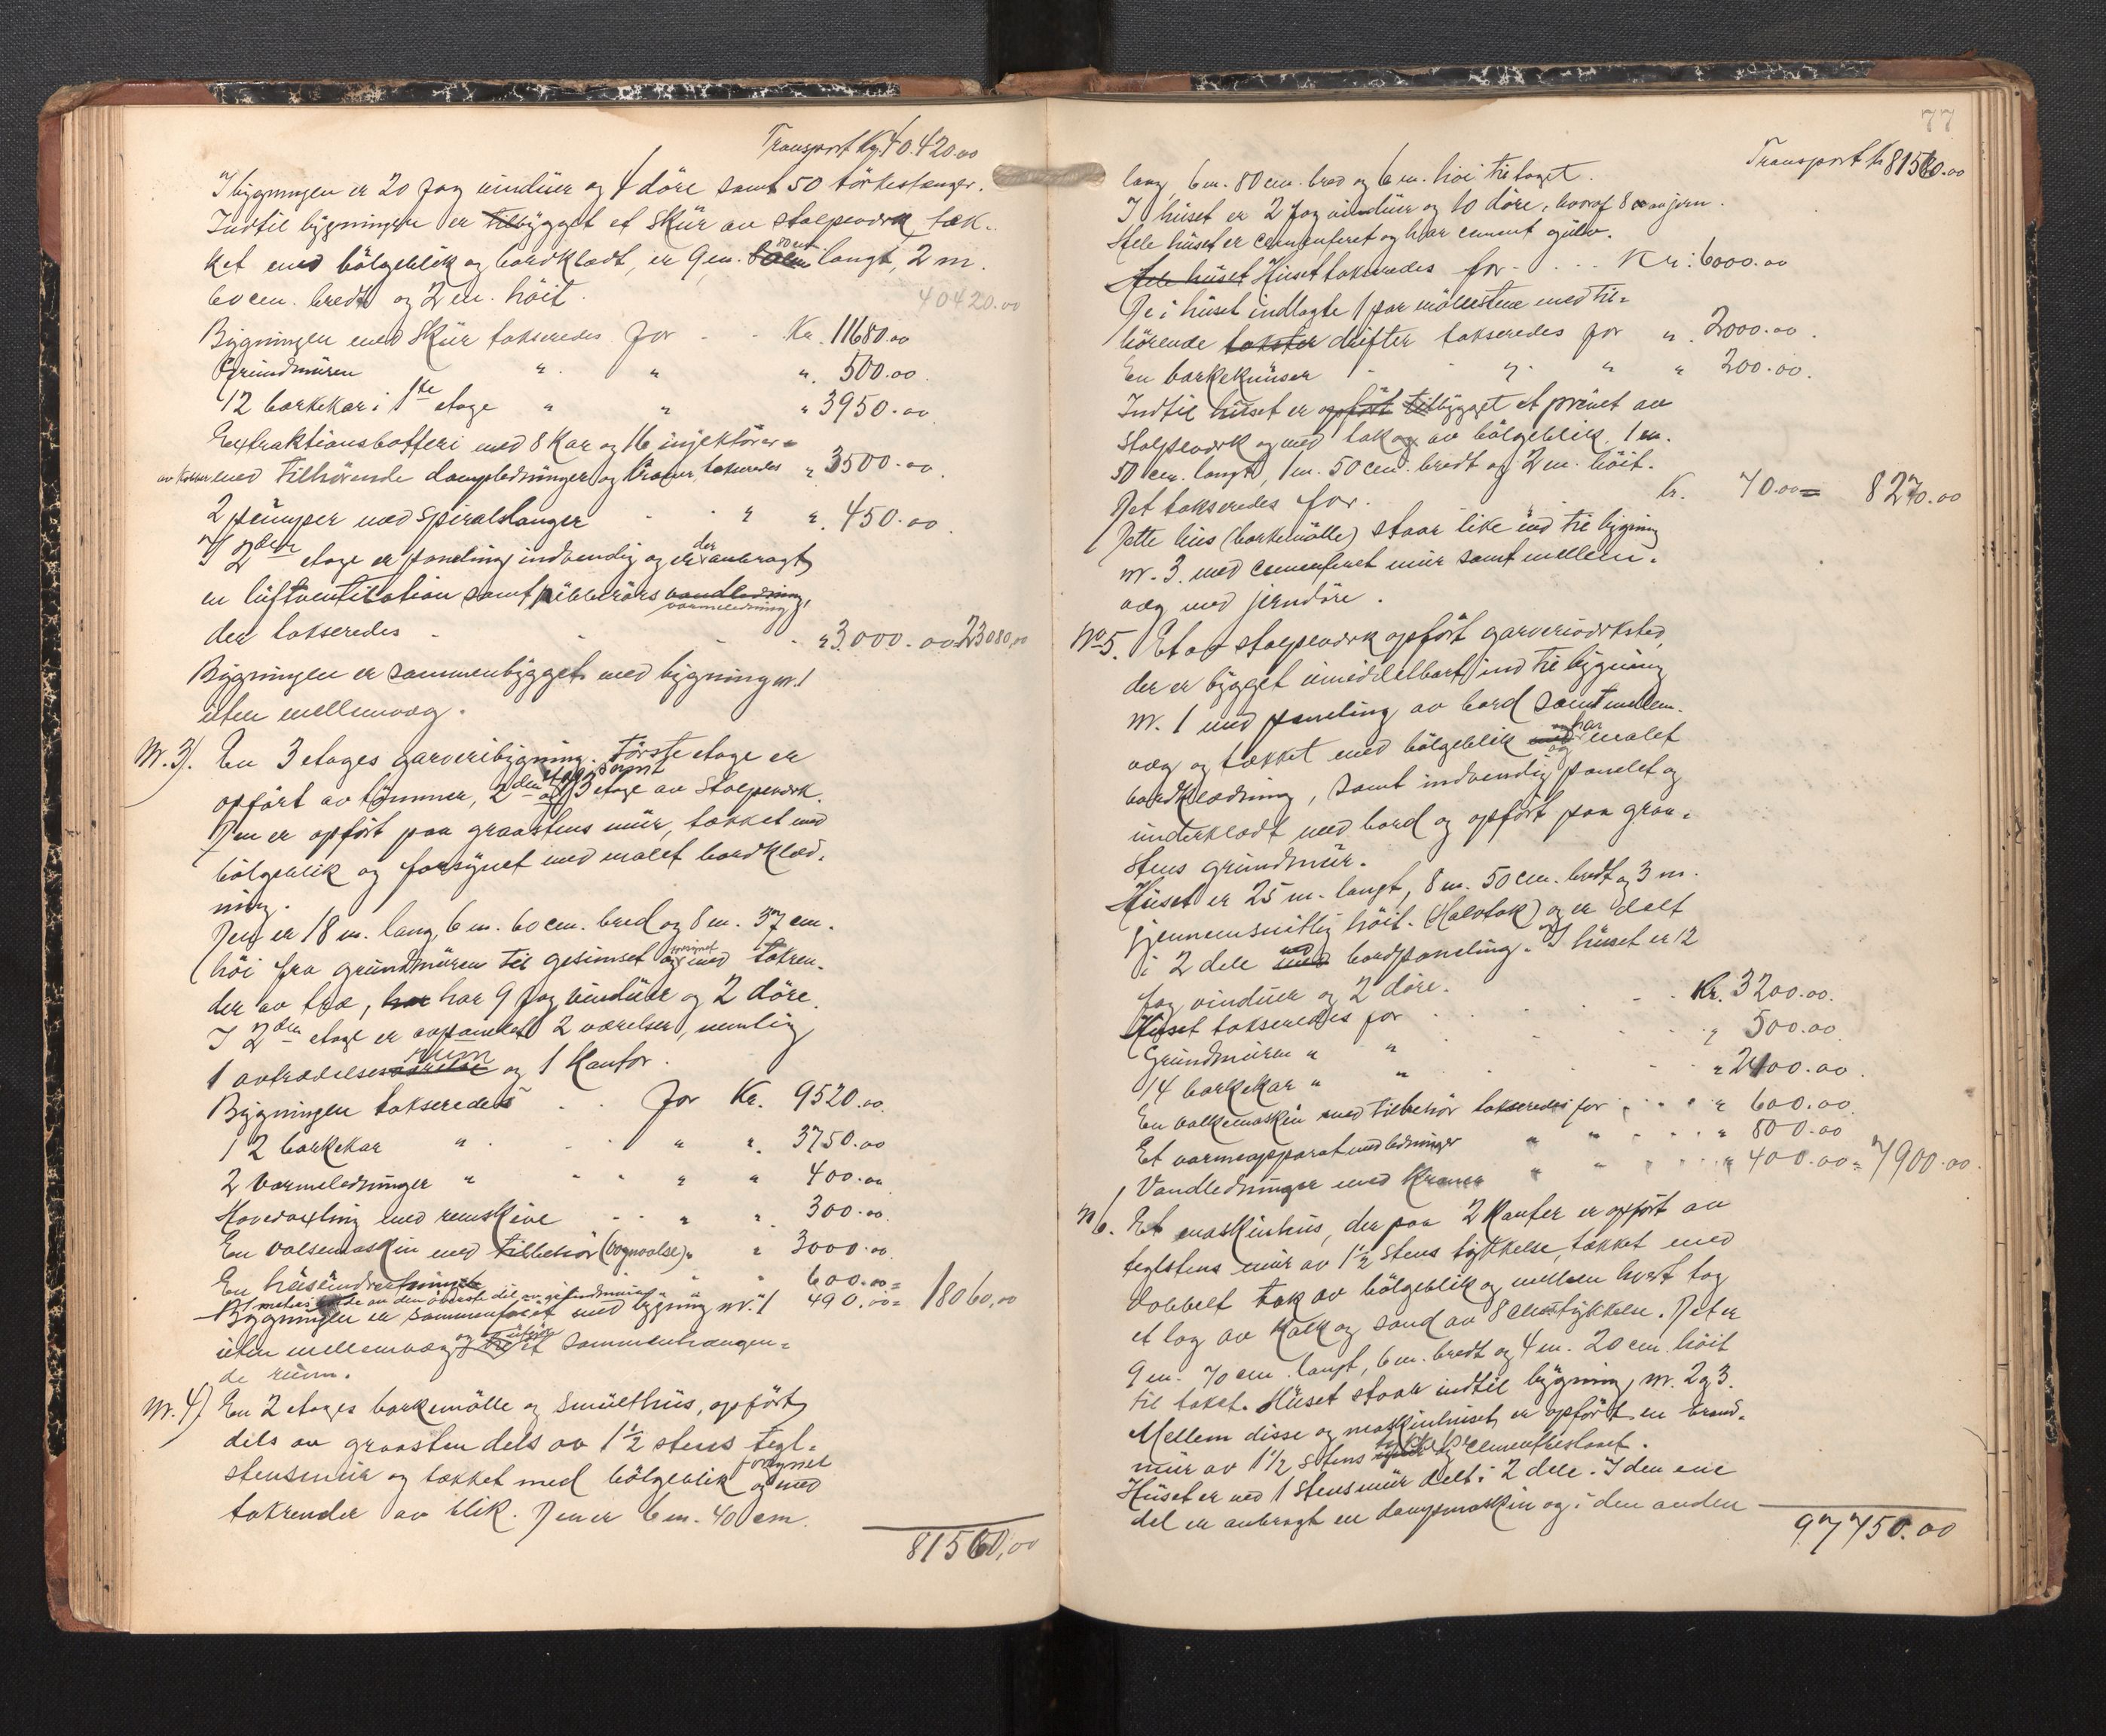 Transport Kr. 40.420.00
I bygningen er 20 fag vinduer og 4 döre samt 50 törkestænger.
Indtil bygningen er tilbygget et skur av stolpeverk tæk-
ket med bölgeblik og bordklædt, er 9 m. 80 cm. langt, 2 m.
60 cm. bredt og 2 m. höit.
40420.00
Bygningen med skur takseredes for - - Kr. 11680.00
Grundmuren " " " 500.00
12 barkekar i 1ste etage " " " 3950.00
Extraktionsbatteri med 8 kar og 16 injektörer
av kobber med tilhörende dampledninger og kraner takseredes " 3500.00
2 pumper med spiralslanger - - " " 450.00
I 2den etage er paneling indvendig og er der anbragt
en luftventilation samt ribberörs vandledning,
varmeledning
der takseredes - - - - " 3000.00 23080,00
Bygningen er sammenbygget med bygning nr. 1
uten mellemvæg.
Nr. 3). En 3 etages garveribygning. Förste etage er
opfört av tömmer, 2den etage samt og 3 etage av stolpeverk.
Den er opfört paa graastens mur, tækket med
bölgeblik og forsynet med malet bordklæd-
ning.
Den er 18 m. lang, 6 m. 60 cm. bred og 8 m. 37 cm.
höi fra grundmuren til gesimset og forsynet med takren-
der av træ, har har 9 fag vinduer og 2 döre.
I 2den etage er avpanelet 2 værelser, nemlig
1 avtrædelsesværelse rum og 1 kontor.
Bygningen takseredes - - for Kr. 9520.00
12 barkekar " - - " " 3750.00
2 varmeledninger " - - " " 400.00
Hovedaxling med remskive - - " " 300.00
En valsemaskin med tilbehör (vognvalse) " " 3000.00
En heiseindretning " 600.00 =
" 490.00 = 18060,00
Bygningen er sammenfast med bygning nr. 1
uten mellemvæg og sammenhængen-
de rum.
Nr. 4). En 2 etages barkemölle og smulthus, opfört
dels av graasten dels av 1½ stens tegl-
stensmur og tækket med bölgeblik og forsynet med
takrender av blik. Den er 6 m. 40 cm.
81560,00
77
Transport Kr 81560.00
lang, 6 m. 80 cm. bred og 6 m. höi til taget.
I huset er 2 fag vinduer og 10 döre, hvoraf 8 er av jern.
Hele huset er cementeret og har cement gulv.
Hele huset Huset takseredes for - - - Kr: 6000.00
De i huset indlagte 1 par möllestene med til-
hörende takster drifter takseredes for " 2000.00.
En barkeknuser - - " " " 200.00.
Indtil huset er opfört tilbygget et privet av
stolpeverk og med tak av bölgeblik, 1 m.
50 cm. langt, 1 m. 50 cm. bredt og 2 m. höit.
Det takseredes for. Kr. 70.00 = 8270.00
Dette hus (barkemölle) staar like ind til bygning
nr. 3. med cementeret mur samt mellem-
væg med jerndöre.
No 5. Et av stolpeverk opfört garveriverksted,
der er bygget umiddelbart ind til bygning
nr. 1 med paneling av bord samt mellem-
væg og tækket med bölgeblik med og har malet
bordklædning, samt indvendig panelet og
underklædt med bord og opfört paa graa-
stens grundmur.
Huset er 25 m. langt, 8 m. 50 cm. bredt og 3 m.
gjennemsnitlig höit. (Halvtak) og er delt
i 2 dele med ved bordpaneling. I huset er 12
fag vinduer og 2 döre.
Huset takseredes for - - - - Kr. 3200.00.
Grundmuren " " - - - " 500.00
14 barkekar " " - - - " 2400.00.
En valkemaskin med tilbehör takseredes for - - " 600.00.
Et varmeapparat med ledninger " " - - " 800.00
Vandledninger med kraner " " - - " 400.00 = 7900.00.
No 6. Et maskinhus, der paa 2 kanter er opfört av
teglstens mur av 1½ stens tykkelse, tækket med
dobbelt tak av bölgeblik og mellem hvert tag
et lag av kalk og sand av 8 cms tykkelse. Det er
9 m. 70 cm. langt, 6 m. bredt og 4 m. 20 cm. höit
til taket. Huset staar indtil bygning nr. 2 og 3.
Mellem disse og maskinhuset er opfört en brand-
mur av 1½ stens tykkelse og cementbeslaaet.
Huset er ved 1 stensmur delt i 2 dele. I den ene
del er anbragt en dampmaskin og i den anden
97750.00